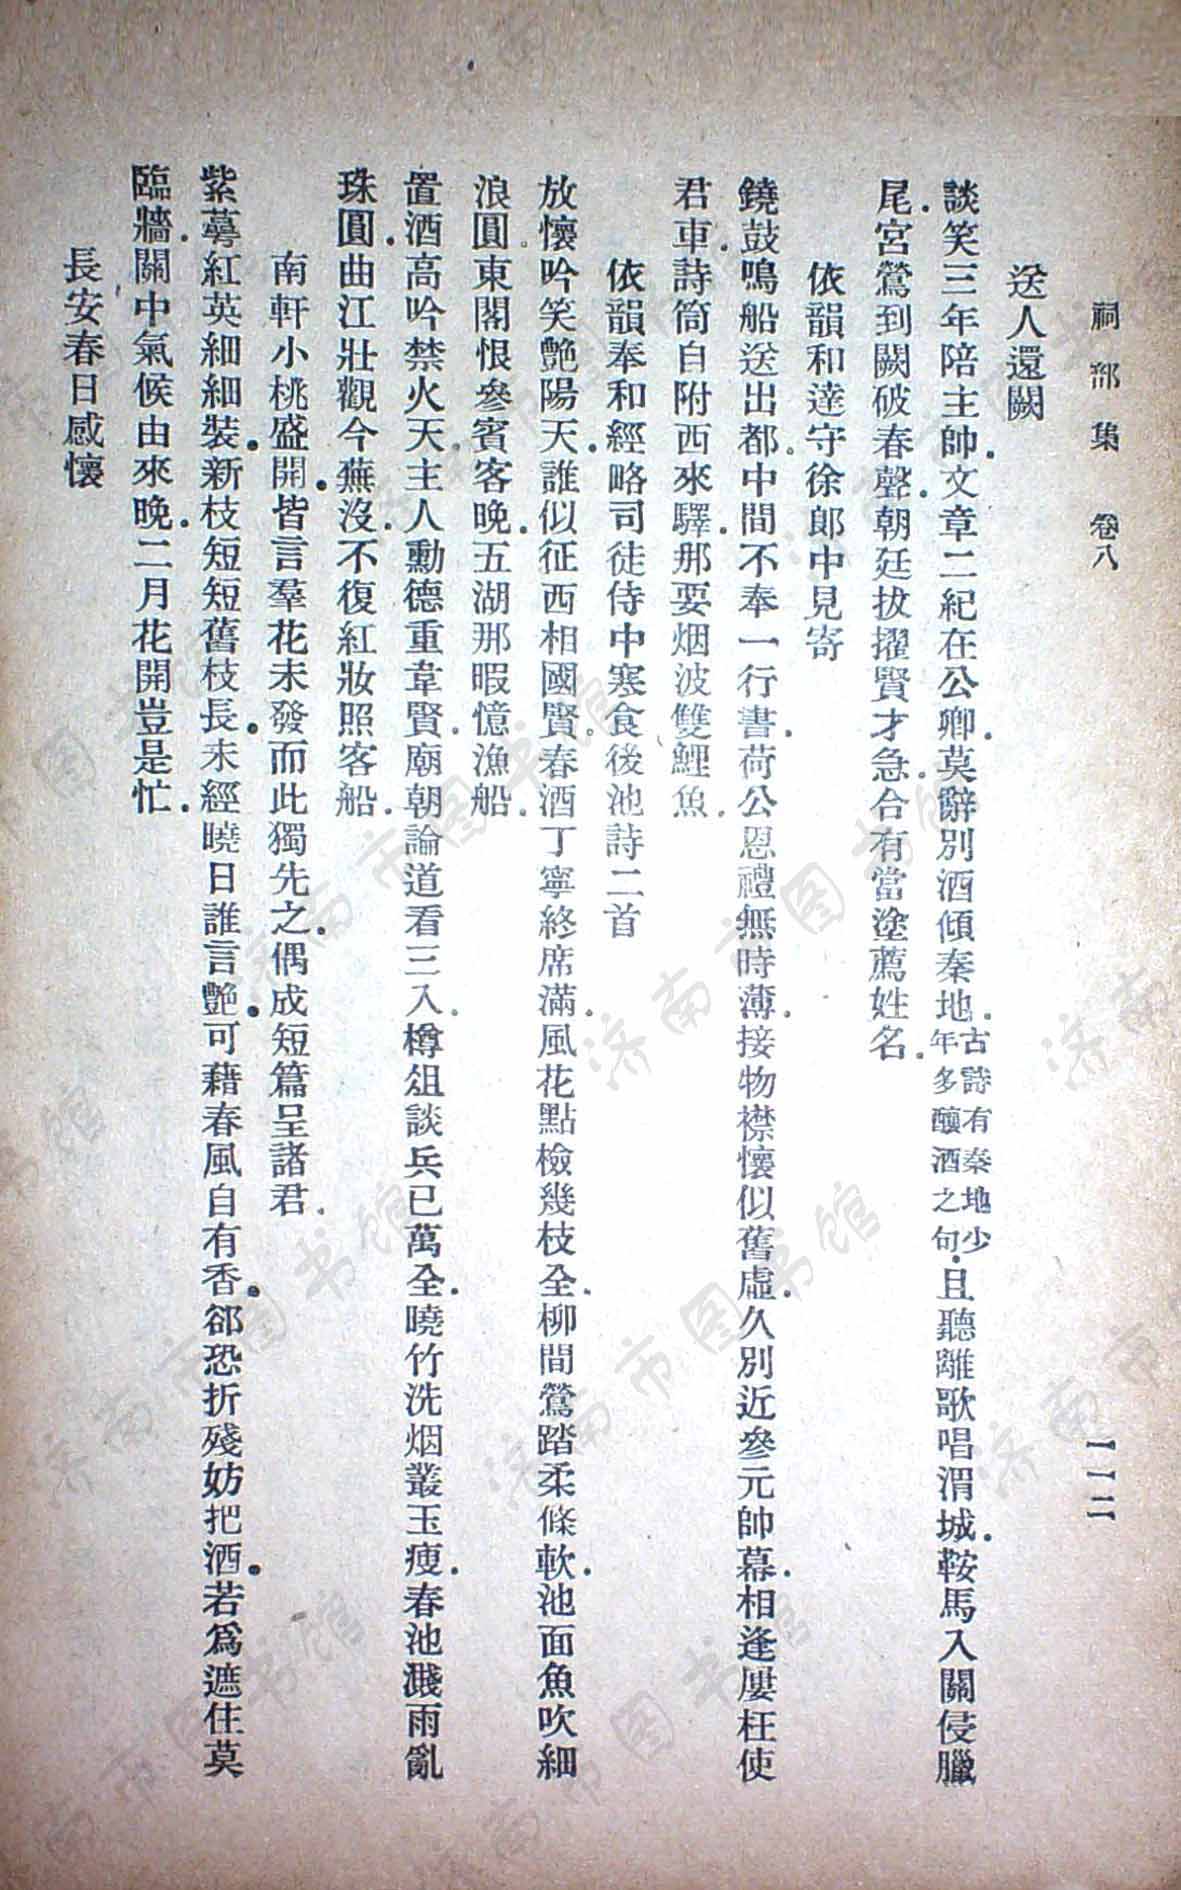 祠部集 卷八 一一二
送人還闕
談笑三年陪主帥．文章二紀在公卿．莫辭別酒傾秦地．古詩有秦地少年多釀酒之句．且聽離歌唱渭城．鞍馬入關侵臘
尾．宮鶯到闕破春聲．朝廷拔擢賢才急．合有當塗薦姓名．
依韻和達守徐郎中見寄
鐃鼓鳴船送出都．中間不奉一行書．荷公恩禮無時薄．接物襟懷似舊虛．久別近參元帥幕．相逢屢枉使
君車．詩筒自附西來驛．那要烟波雙鯉魚．
依韻奉和經略司徒侍中寒食後池詩二首
放懷吟笑艷陽天．誰似征西相國賢．春酒丁寧終席滿．風花點檢幾枝全．柳間鶯踏柔條軟．池面魚吹細
浪圓．東閣恨參賓客晚．五湖那暇憶漁船．
置酒高吟禁火天．主人勳德重韋賢．廟朝論道看三入．樽俎談兵已萬全．曉竹洗烟叢玉瘦．春池濺雨亂
珠圓．曲江壯觀今蕪沒．不復紅妝照客船．
南軒小桃盛開．皆言羣花未發而此獨先之．偶成短篇呈諸君．
紫蕚紅英細細裝．新枝短短舊枝長．未經曉日誰言艷．可藉春風自有香．郤恐折殘妨把酒．若爲遮住莫
臨牆．關中氣候由來晚．二月花開豈是忙．
長安春日感懷
济南市图书馆